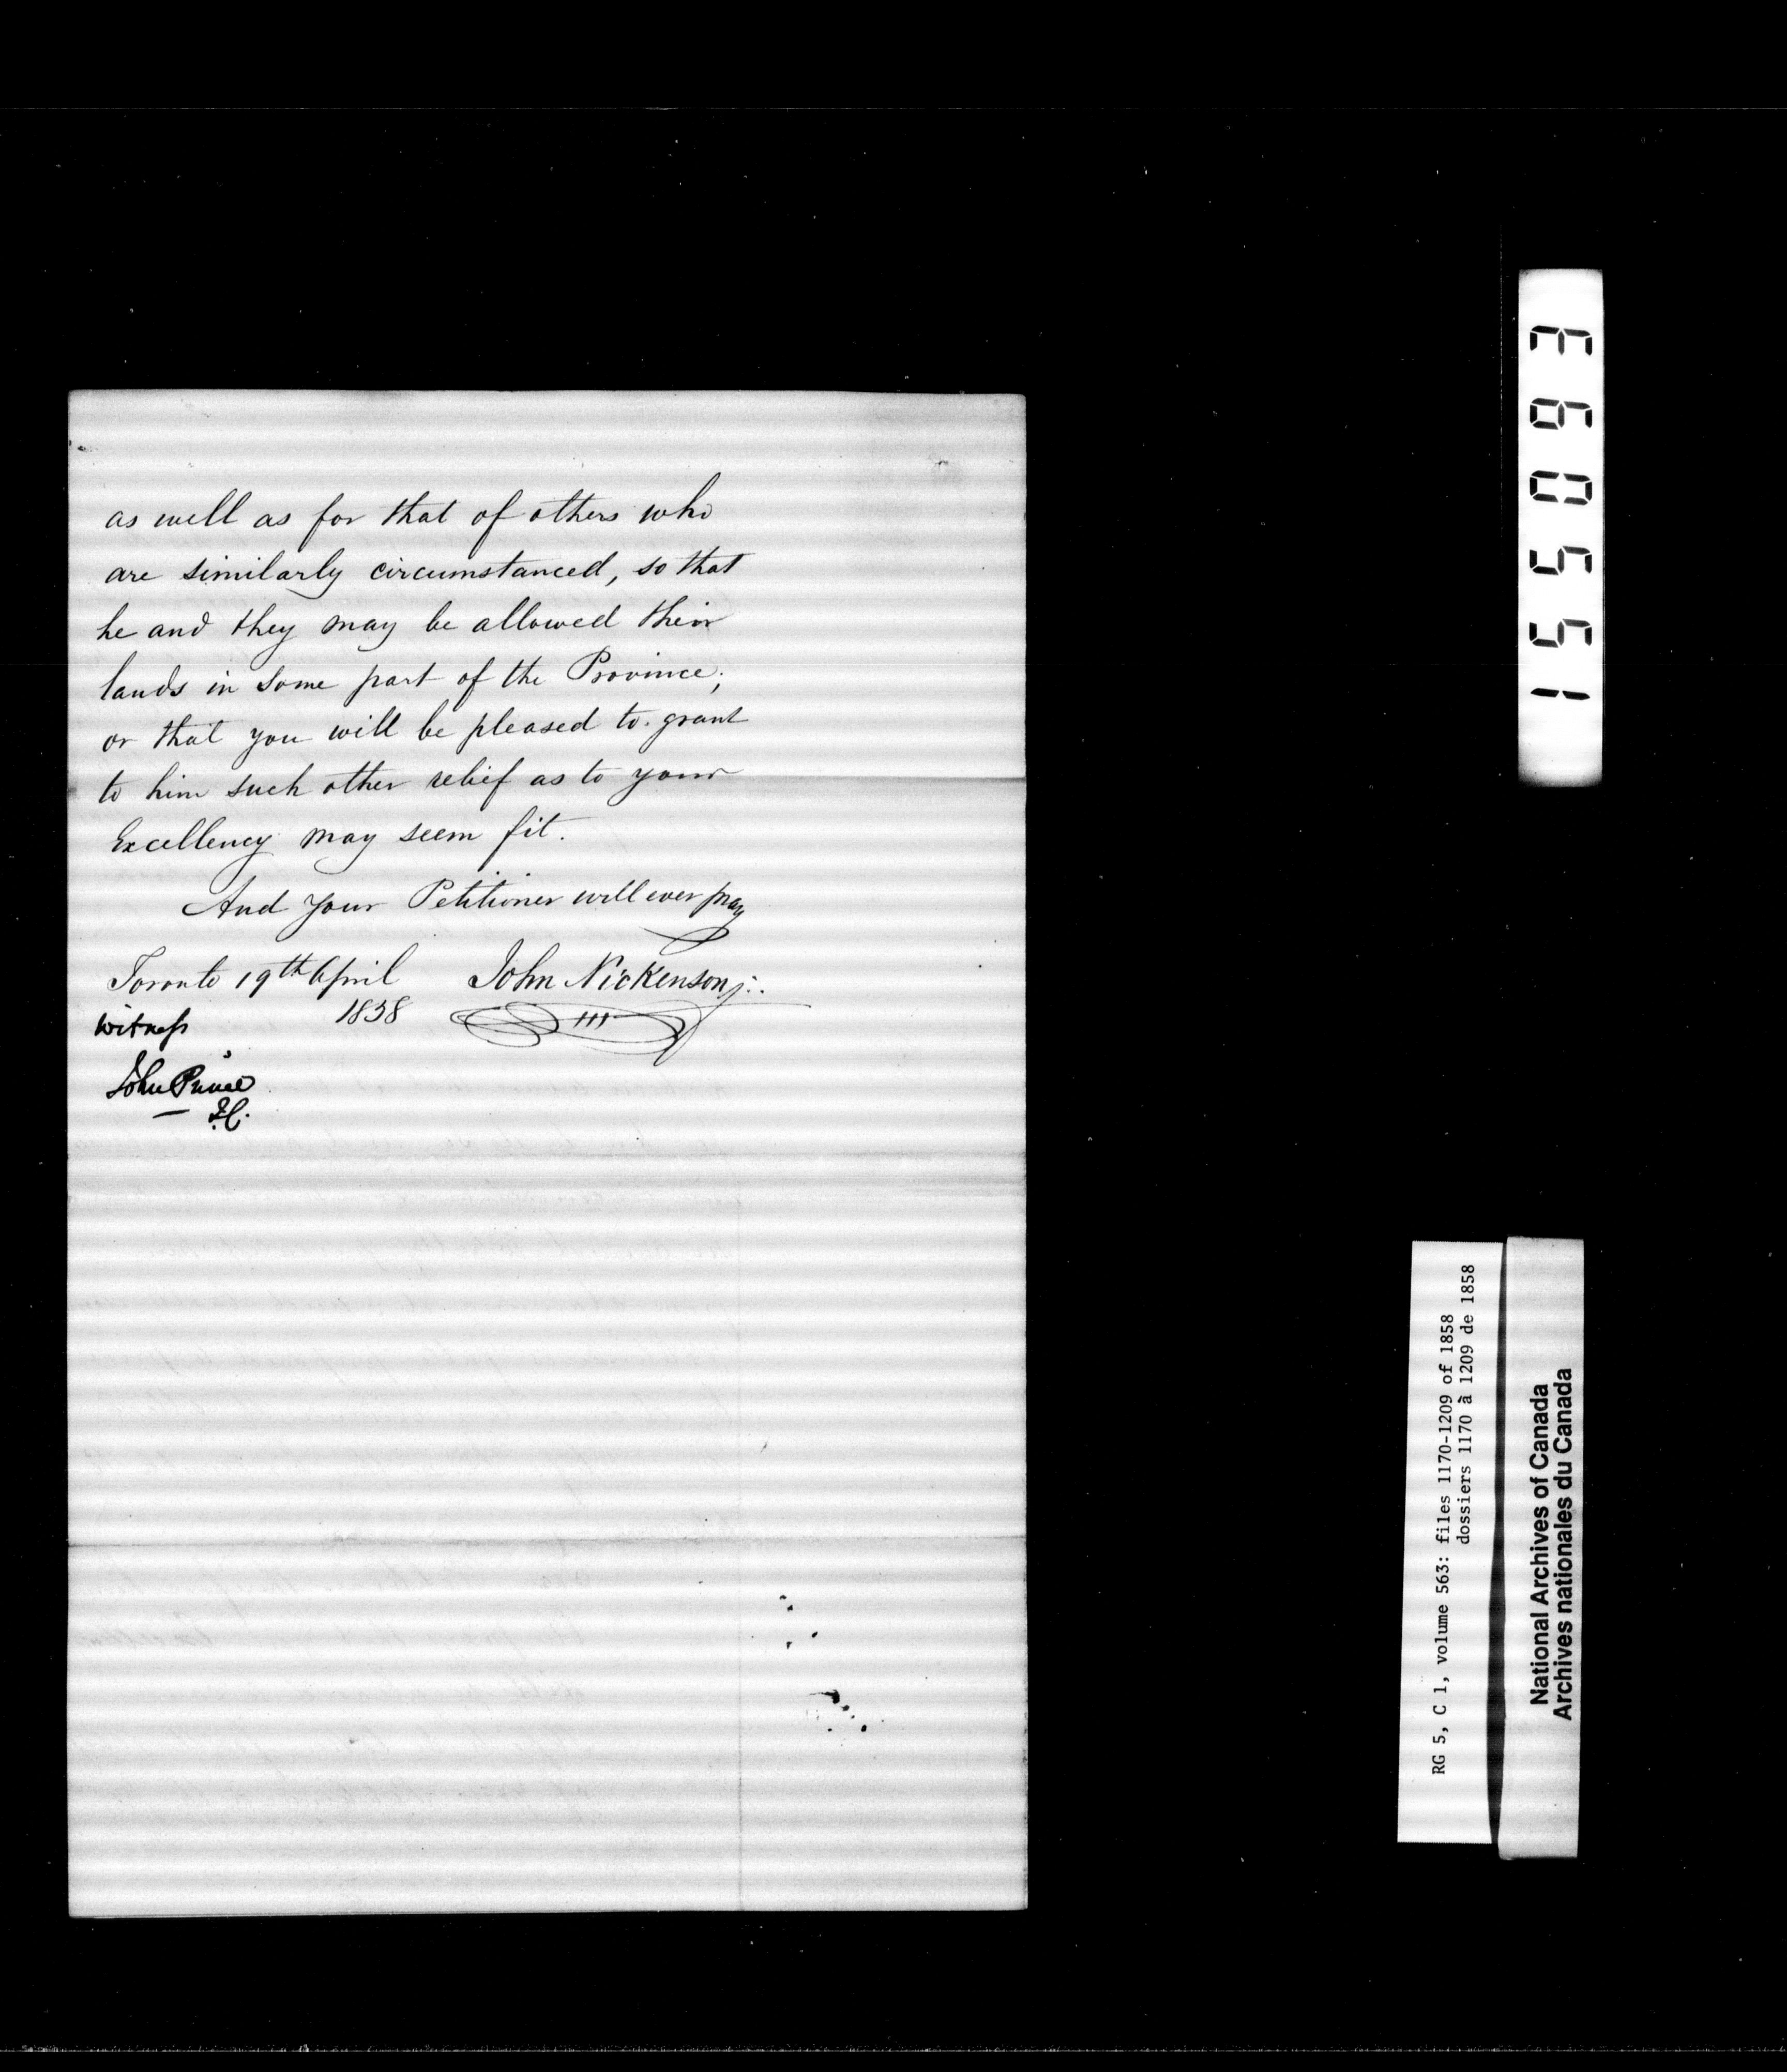 as well as for that of others who
are similarly circumstanced, so that
he and they may be allowed their
lands in some part of the Province;
or that you will be pleased to grant
to him such other relief as to your
Excellency may seem fit.
And your Petitioner will ever pray
Toronto 19th April
1838
John Nickenson
witness
John Prince
RG 5, C 1, volume 563: files 1170-1209 of 1858
dossiers 1170 à 1209 de 1858
National Archives of Canada
Archives nationales du Canada